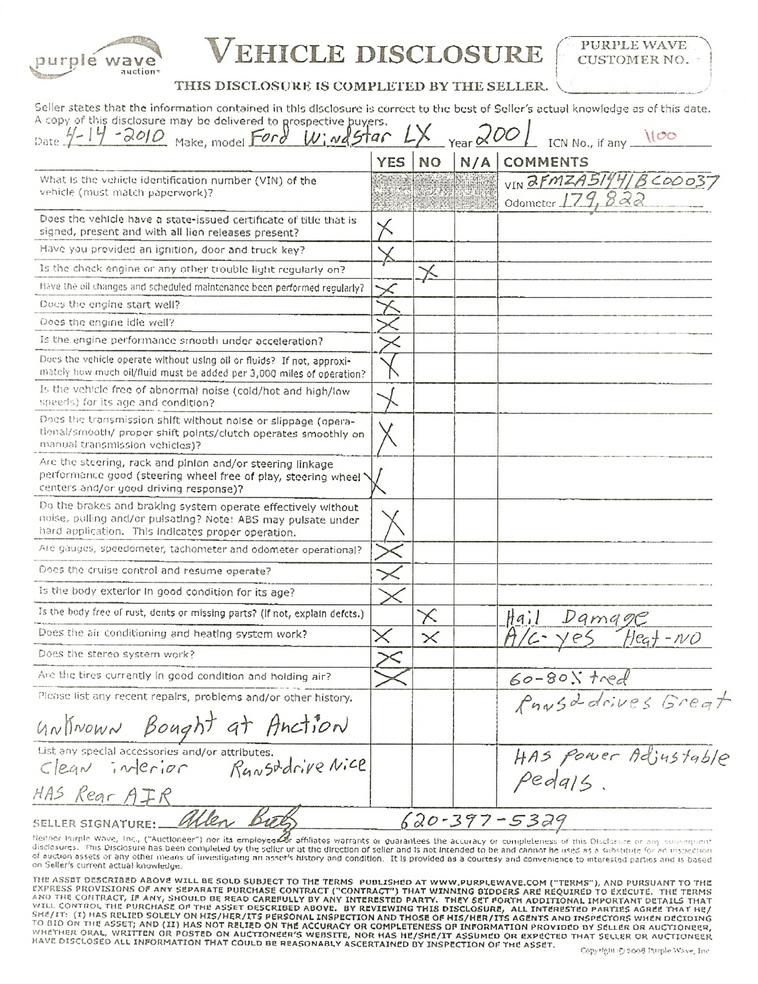 purple wave
auction™
VEHICLE DISCLOSURE
PURPLE WAVE
CUSTOMER NO.
THIS DISCLOSURE IS COMPLETED BY THE SELLER.
Seller states that the information contained in this disclosure is correct to the best of Seller's actual knowledge as of this date.
A copy of this disclosure may be delivered to prospective buyers.
Date 4-14-2010 Make, model Ford WindStar LX Year 2001 ICN No., if any 1100
YES NO N/A COMMENTS
What is the vehicle identification number (VIN) of the
vehicle (must match paperwork)?
VIN 2FMZA51441BC00037
Odometer 179,822
Does the vehicle have a state-issued certificate of title that is
signed, present and with all lien releases present? X
Have you provided an ignition, door and truck key? X
Is the check engine or any other trouble light regularly on? X
Have the oil changes and scheduled maintenance been performed regularly? X
Does the engine start well? X
Does the engine idle well? X
Is the engine performance smooth under acceleration? X
Does the vehicle operate without using oil or fluids? If not, approxi-
mately how much oil/fluid must be added per 3,000 miles of operation? X
Is the vehicle free of abnormal noise (cold/hot and high/low
speeds) for its age and condition? X
Does the transmission shift without noise or slippage (opera-
tional/smooth/ proper shift points/clutch operates smoothly on
manual transmission vehicles)? X
Are the steering, rack and pinion and/or steering linkage
performance good (steering wheel free of play, steering wheel
centers and/or good driving response)? X
Do the brakes and braking system operate effectively without
noise, pulling and/or pulsating? Note! ABS may pulsate under
hard application. This indicates proper operation. X
Are gauges, speedometer, tachometer and odometer operational? X
Does the cruise control and resume operate? X
Is the body exterior in good condition for its age? X
Is the body free of rust, dents or missing parts? (If not, explain defcts.) X Hail Damage
Does the air conditioning and heating system work? X X A/C-yes Heat-NO
Does the stereo system work? X
Are the tires currently in good condition and holding air? X 60-80% tred
Please list any recent repairs, problems and/or other history.
Runs & drives Great
UNKNOWN Bought at Auction
List any special accessories and/or attributes.
Clean interior Runs & drive Nice
HAS Rear AIR
HAS Power Adjustable
Pedals.
SELLER SIGNATURE: Allen 620-397-5329
Neither Purple Wave, Inc., ("Auctioneer") nor its employees or affiliates warrants or guarantees the accuracy or completeness of this Disclosure or any subsequent
disclosures. This Disclosure has been completed by the seller or at the direction of seller and is not intended to be and cannot be used as a substitute for an inspection
of auction assets or any other means of investigating an asset's history and condition. It is provided as a courtesy and convenience to interested parties and is based
on Seller's current actual knowledge.
THE ASSET DESCRIBED ABOVE WILL BE SOLD SUBJECT TO THE TERMS PUBLISHED AT WWW.PURPLEWAVE.COM ("TERMS"), AND PURSUANT TO THE
EXPRESS PROVISIONS OF ANY SEPARATE PURCHASE CONTRACT ("CONTRACT") THAT WINNING BIDDERS ARE REQUIRED TO EXECUTE. THE TERMS
AND THE CONTRACT, IF ANY, SHOULD BE READ CAREFULLY BY ANY INTERESTED PARTY. THEY SET FORTH ADDITIONAL IMPORTANT DETAILS THAT
WILL CONTROL THE PURCHASE OF THE ASSET DESCRIBED ABOVE. BY REVIEWING THIS DISCLOSURE, ALL INTERESTED PARTIES AGREE THAT HE/
SHE/IT: (I) HAS RELIED SOLELY ON HIS/HER/ITS PERSONAL INSPECTION AND THOSE OF HIS/HER/ITS AGENTS AND INSPECTORS WHEN DECIDING
TO BID ON THE ASSET; AND (II) HAS NOT RELIED ON THE ACCURACY OR COMPLETENESS OF INFORMATION PROVIDED BY SELLER OR AUCTIONEER,
WHETHER ORAL, WRITTEN OR POSTED ON AUCTIONEER'S WEBSITE, NOR HAS HE/SHE/IT ASSUMED OR EXPECTED THAT SELLER OR AUCTIONEER
HAVE DISCLOSED ALL INFORMATION THAT COULD BE REASONABLY ASCERTAINED BY INSPECTION OF THE ASSET.
Copyright © 2008 Purple Wave, Inc.